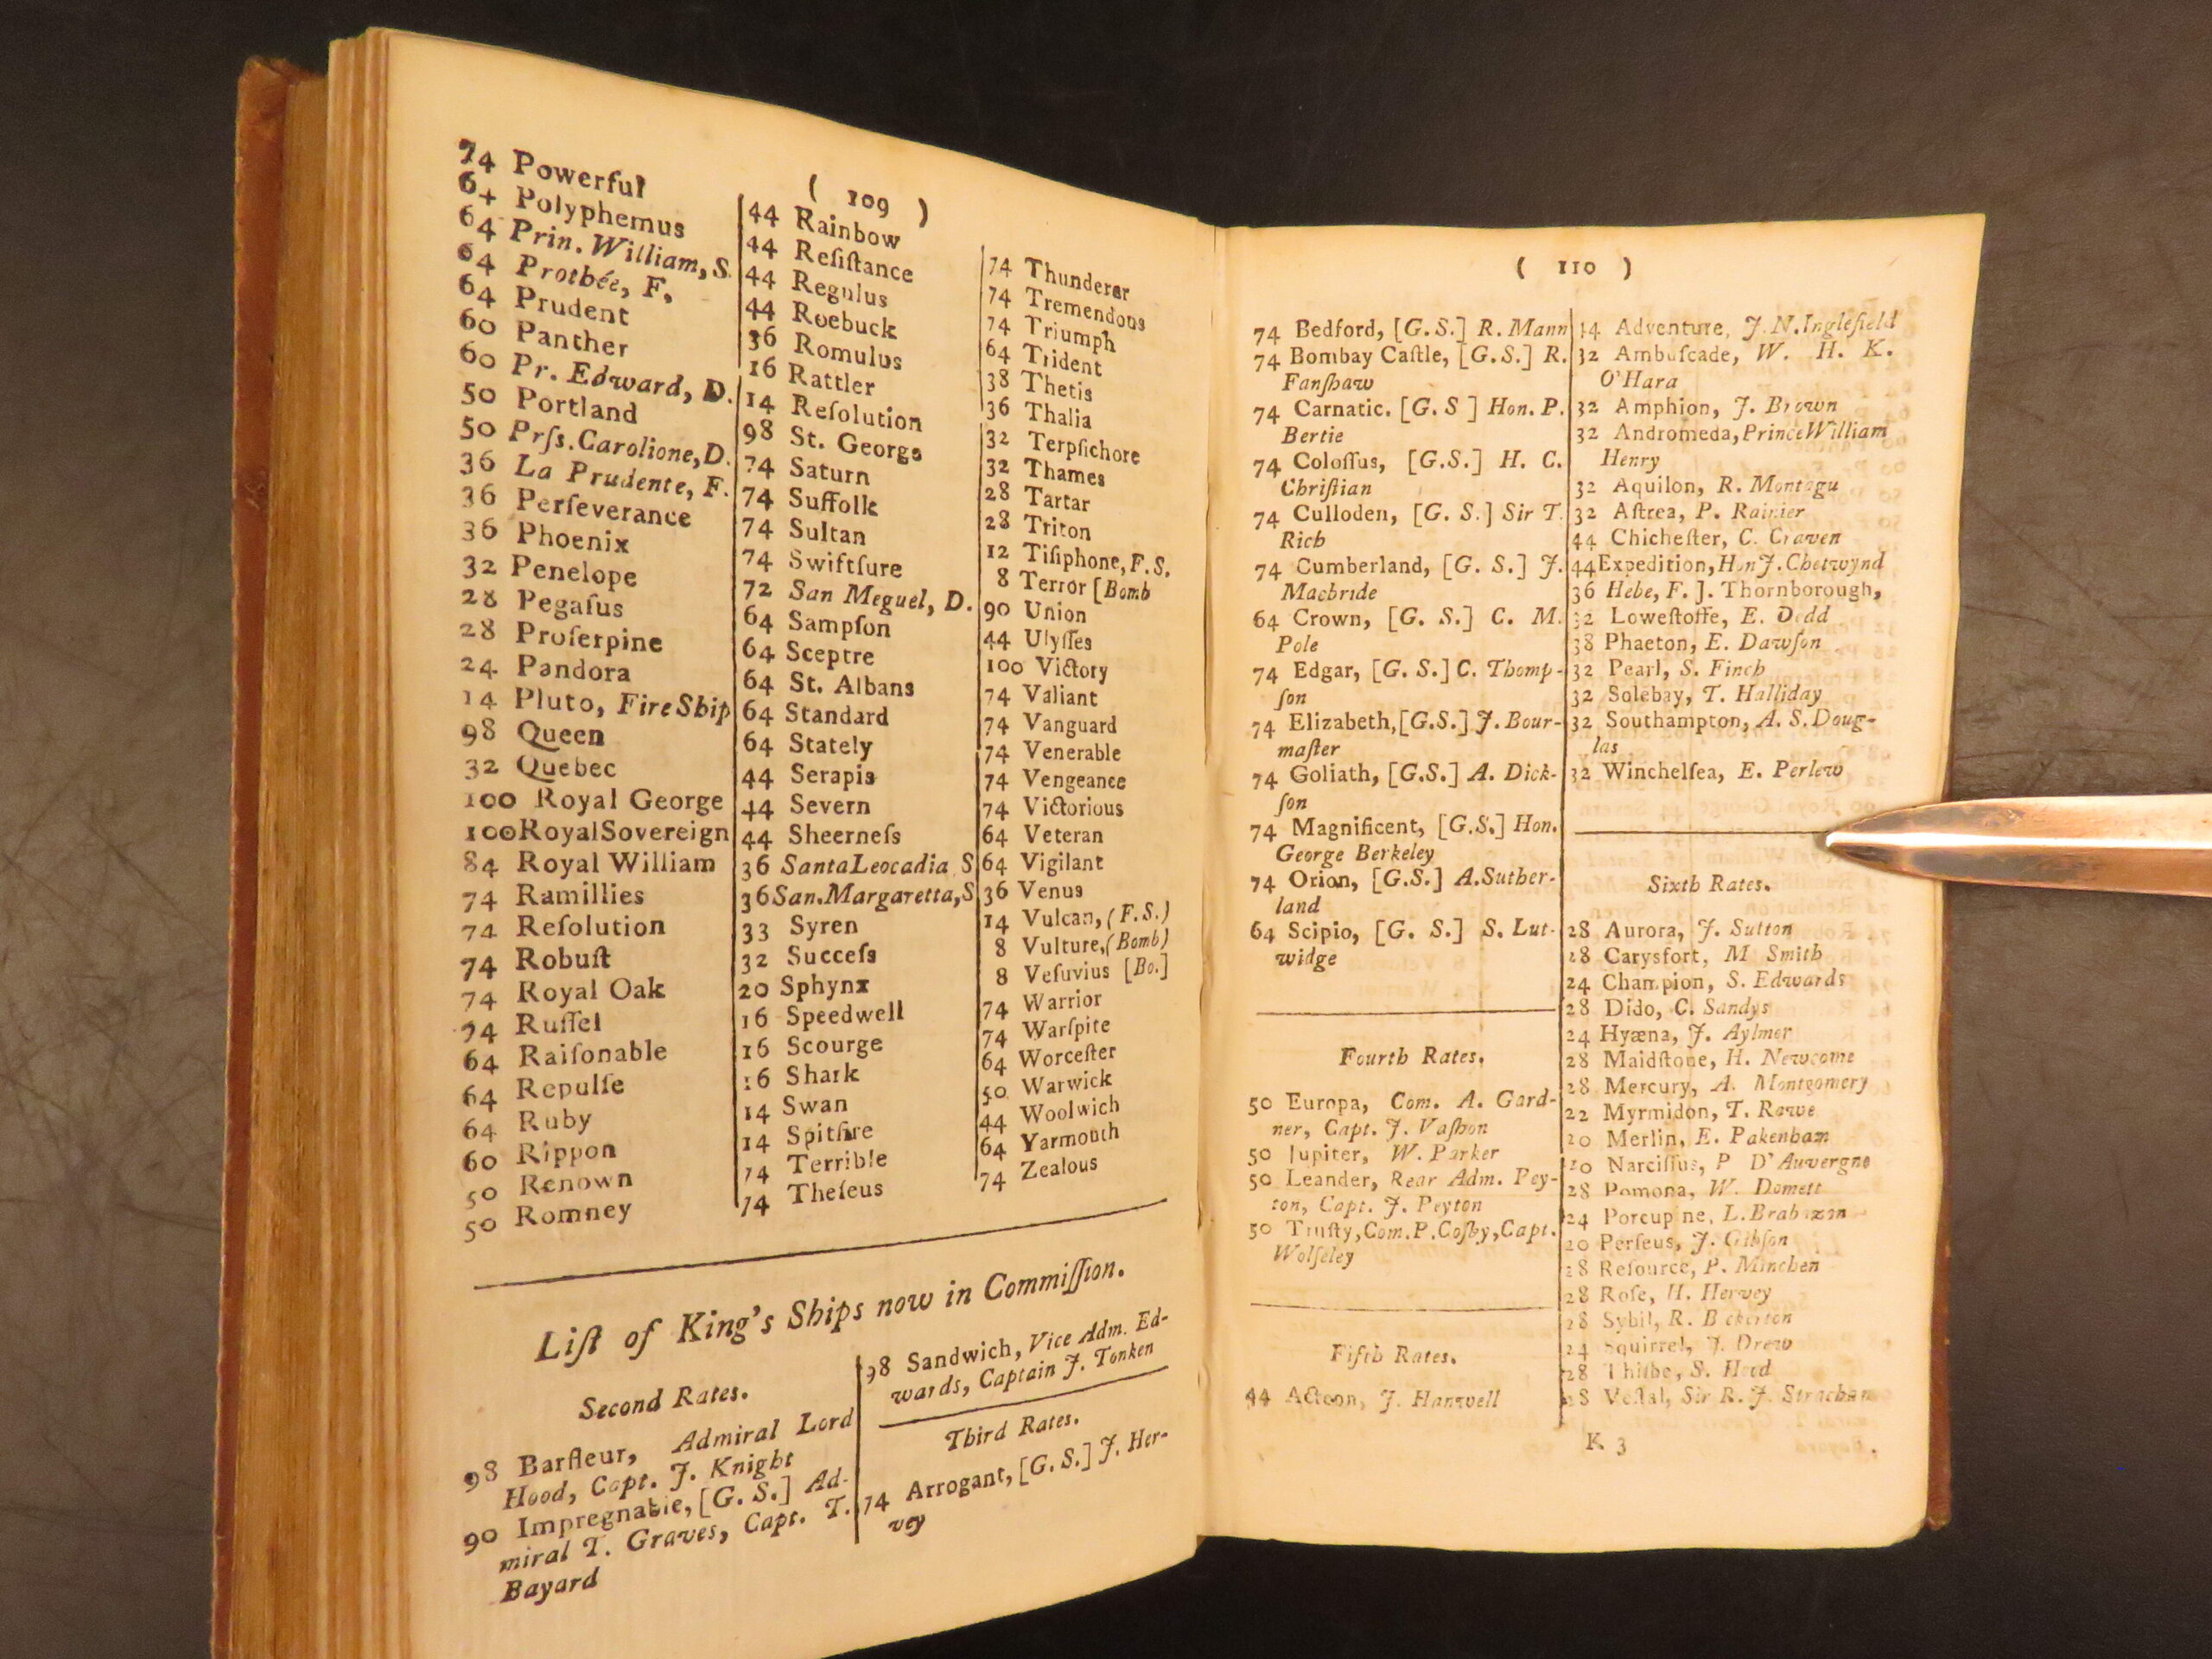 ( 109 )
74 Powerful
64 Polyphemus
64 Prin. William, S.
64 Prothée, F.
64 Prudent
60 Panther
60 Pr. Edward, D.
50 Portland
50 Prſs. Carolione, D.
36 La Prudente, F.
36 Perſeverance
36 Phoenix
32 Penelope
28 Pegaſus
28 Proſerpine
24 Pandora
14 Pluto, Fire Ship
98 Queen
32 Quebec
100 Royal George
100 Royal Sovereign
84 Royal William
74 Ramillies
74 Reſolution
74 Robuſt
74 Royal Oak
74 Ruſſel
64 Raiſonable
64 Repulſe
64 Ruby
60 Rippon
50 Renown
50 Romney
44 Rainbow
44 Reſiſtance
44 Regulus
44 Roebuck
36 Romulus
16 Rattler
14 Reſolution
98 St. George
74 Saturn
74 Suffolk
74 Sultan
74 Swiftſure
72 San Meguel, D.
64 Sampſon
64 Sceptre
64 St. Albans
64 Standard
64 Stately
44 Serapis
44 Severn
44 Sheerneſs
36 Santa Leocadia S
36 San. Margaretta, S
33 Syren
32 Succeſs
20 Sphynx
16 Speedwell
16 Scourge
16 Shark
14 Swan
14 Spitfire
74 Terrible
74 Theſeus
74 Thunderer
74 Tremendous
74 Triumph
64 Trident
38 Thetis
36 Thalia
32 Terpſichore
32 Thames
28 Tartar
28 Triton
12 Tiſiphone, F. S.
8 Terror [Bomb
90 Union
44 Ulyſſes
100 Victory
74 Valiant
74 Vanguard
74 Venerable
74 Vengeance
74 Victorious
64 Veteran
64 Vigilant
36 Venus
14 Vulcan, (F. S.)
8 Vulture, (Bomb)
8 Veſuvius [Bo.]
74 Warrior
74 Warſpite
64 Worceſter
50 Warwick
44 Woolwich
64 Yarmouth
74 Zealous
Liſt of King's Ships now in Commiſſion.
Second Rates.
98 Barfleur, Admiral Lord
Hood, Capt. J. Knight
90 Impregnable, [G. S.] Ad-
miral T. Graves, Capt. T.
Bayard
98 Sandwich, Vice Adm. Ed-
wards, Captain J. Tonken
Third Rates.
74 Arrogant, [G. S.] J. Her-
vey
( 110 )
74 Bedford, [G.S.] R. Mann
74 Bombay Caſtle, [G.S.] R.
Fanſhaw
74 Carnatic. [G. S ] Hon. P.
Bertie
74 Coloſſus, [G.S.] H. C.
Chriſtian
74 Culloden, [G. S.] Sir T.
Rich
74 Cumberland, [G. S.] J.
Macbride
64 Crown, [G. S.] C. M.
Pole
74 Edgar, [G. S.] C. Thomp-
ſon
74 Elizabeth, [G.S.] J. Bour-
maſter
74 Goliath, [G.S.] A. Dick-
ſon
74 Magnificent, [G.S.] Hon.
George Berkeley
74 Orion, [G.S.] A. Suther-
land
64 Scipio, [G. S.] S. Lut-
widge
Fourth Rates.
50 Europa, Com. A. Gard-
ner, Capt. J. Vaſhon
50 Jupiter, W. Parker
50 Leander, Rear Adm. Pey-
ton, Capt. J. Peyton
50 Truſty, Com. P. Coſby, Capt.
Wolſeley
Fifth Rates.
44 Acteon, J. Hanwell
44 Adventure, J. N. Inglefield
32 Ambuſcade, W. H. K.
O'Hara
32 Amphion, J. Brown
32 Andromeda, Prince William
Henry
32 Aquilon, R. Montagu
32 Aſtrea, P. Rainier
44 Chicheſter, C. Craven
44 Expedition, Hon J. Chetwynd
36 Hebe, F. J. Thornborough,
32 Loweſtoffe, E. Dodd
38 Phaeton, E. Dawſon
32 Pearl, S. Finch
32 Solebay, T. Halliday
32 Southampton, A. S. Doug-
las
32 Winchelſea, E. Perlew
Sixth Rates.
28 Aurora, J. Sutton
28 Carysfort, M Smith
24 Champion, S. Edwards
28 Dido, C. Sandys
24 Hyæna, J. Aylmer
28 Maidſtone, H. Newcome
28 Mercury, A. Montgomery
22 Myrmidon, T. Rowe
20 Merlin, E. Pakenham
20 Narciſſus, P D'Auvergne
28 Pomona, W. Domett
24 Porcupine, L. Brabazon
20 Perſeus, J. Gibſon
28 Reſource, P. Minchen
28 Roſe, H. Hervey
28 Sybil, R. Bickerton
24 Squirrel, J. Drew
28 Thiſbe, S. Hood
28 Veſtal, Sir R. J. Strachan
K 3